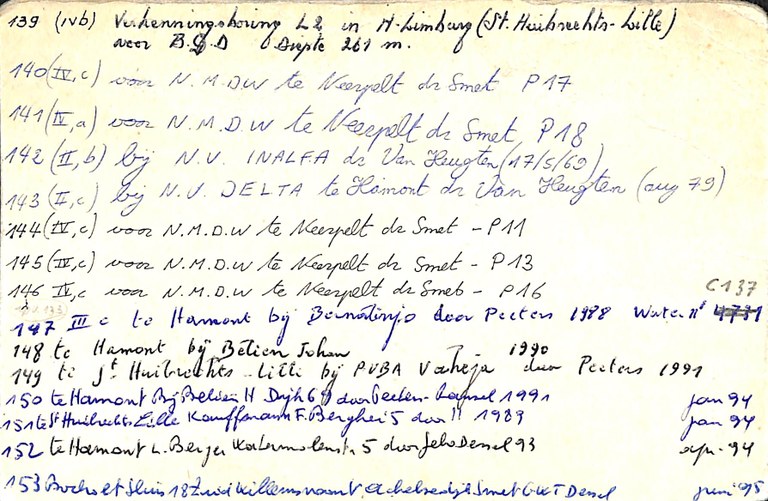 139 (IVb) Verkenningsboring L2 in N-Limburg (St. Huibrechts-Lille)
voor B.G.D Diepte 261 m.
140 (IV,c) voor N.M.D.W te Neerpelt dr Smet P17
141 (IV,a) voor N.M.D.W te Neerpelt dr Smet P18
142 (II,b) bij N.V. INALFA dr Van Heugten (17/5/69)
143 (II,c) bij N.V. DELTA te Hamont dr Van Heugten (aug 79)
144 (IV,c) voor N.M.D.W te Neerpelt dr Smet - P11
145 (IV,c) voor N.M.D.W te Neerpelt dr Smet - P13
146 IV,c voor N.M.D.W te Neerpelt dr Smet - P16
C137
147 III c te Hamont bij door Peeters 1988
148 te Hamont bij Belien Johan 1990
149 te St Huibrechts-Lille bij PVBA door Peeters 1991
150 te Hamont Bij Belien H Dijk 69 door Peeters 1991 jan 94
151 te St Huibrechts Lille Kauffmann F. Berghei 5 door " 1989 jan 94
152 te Hamont L. Berger Watermolenstr 5 door Dessel 93 apr-94
153 Bocholt Sluis 18 Zuid Willemsvaart Smet GWT Dessel juni 95